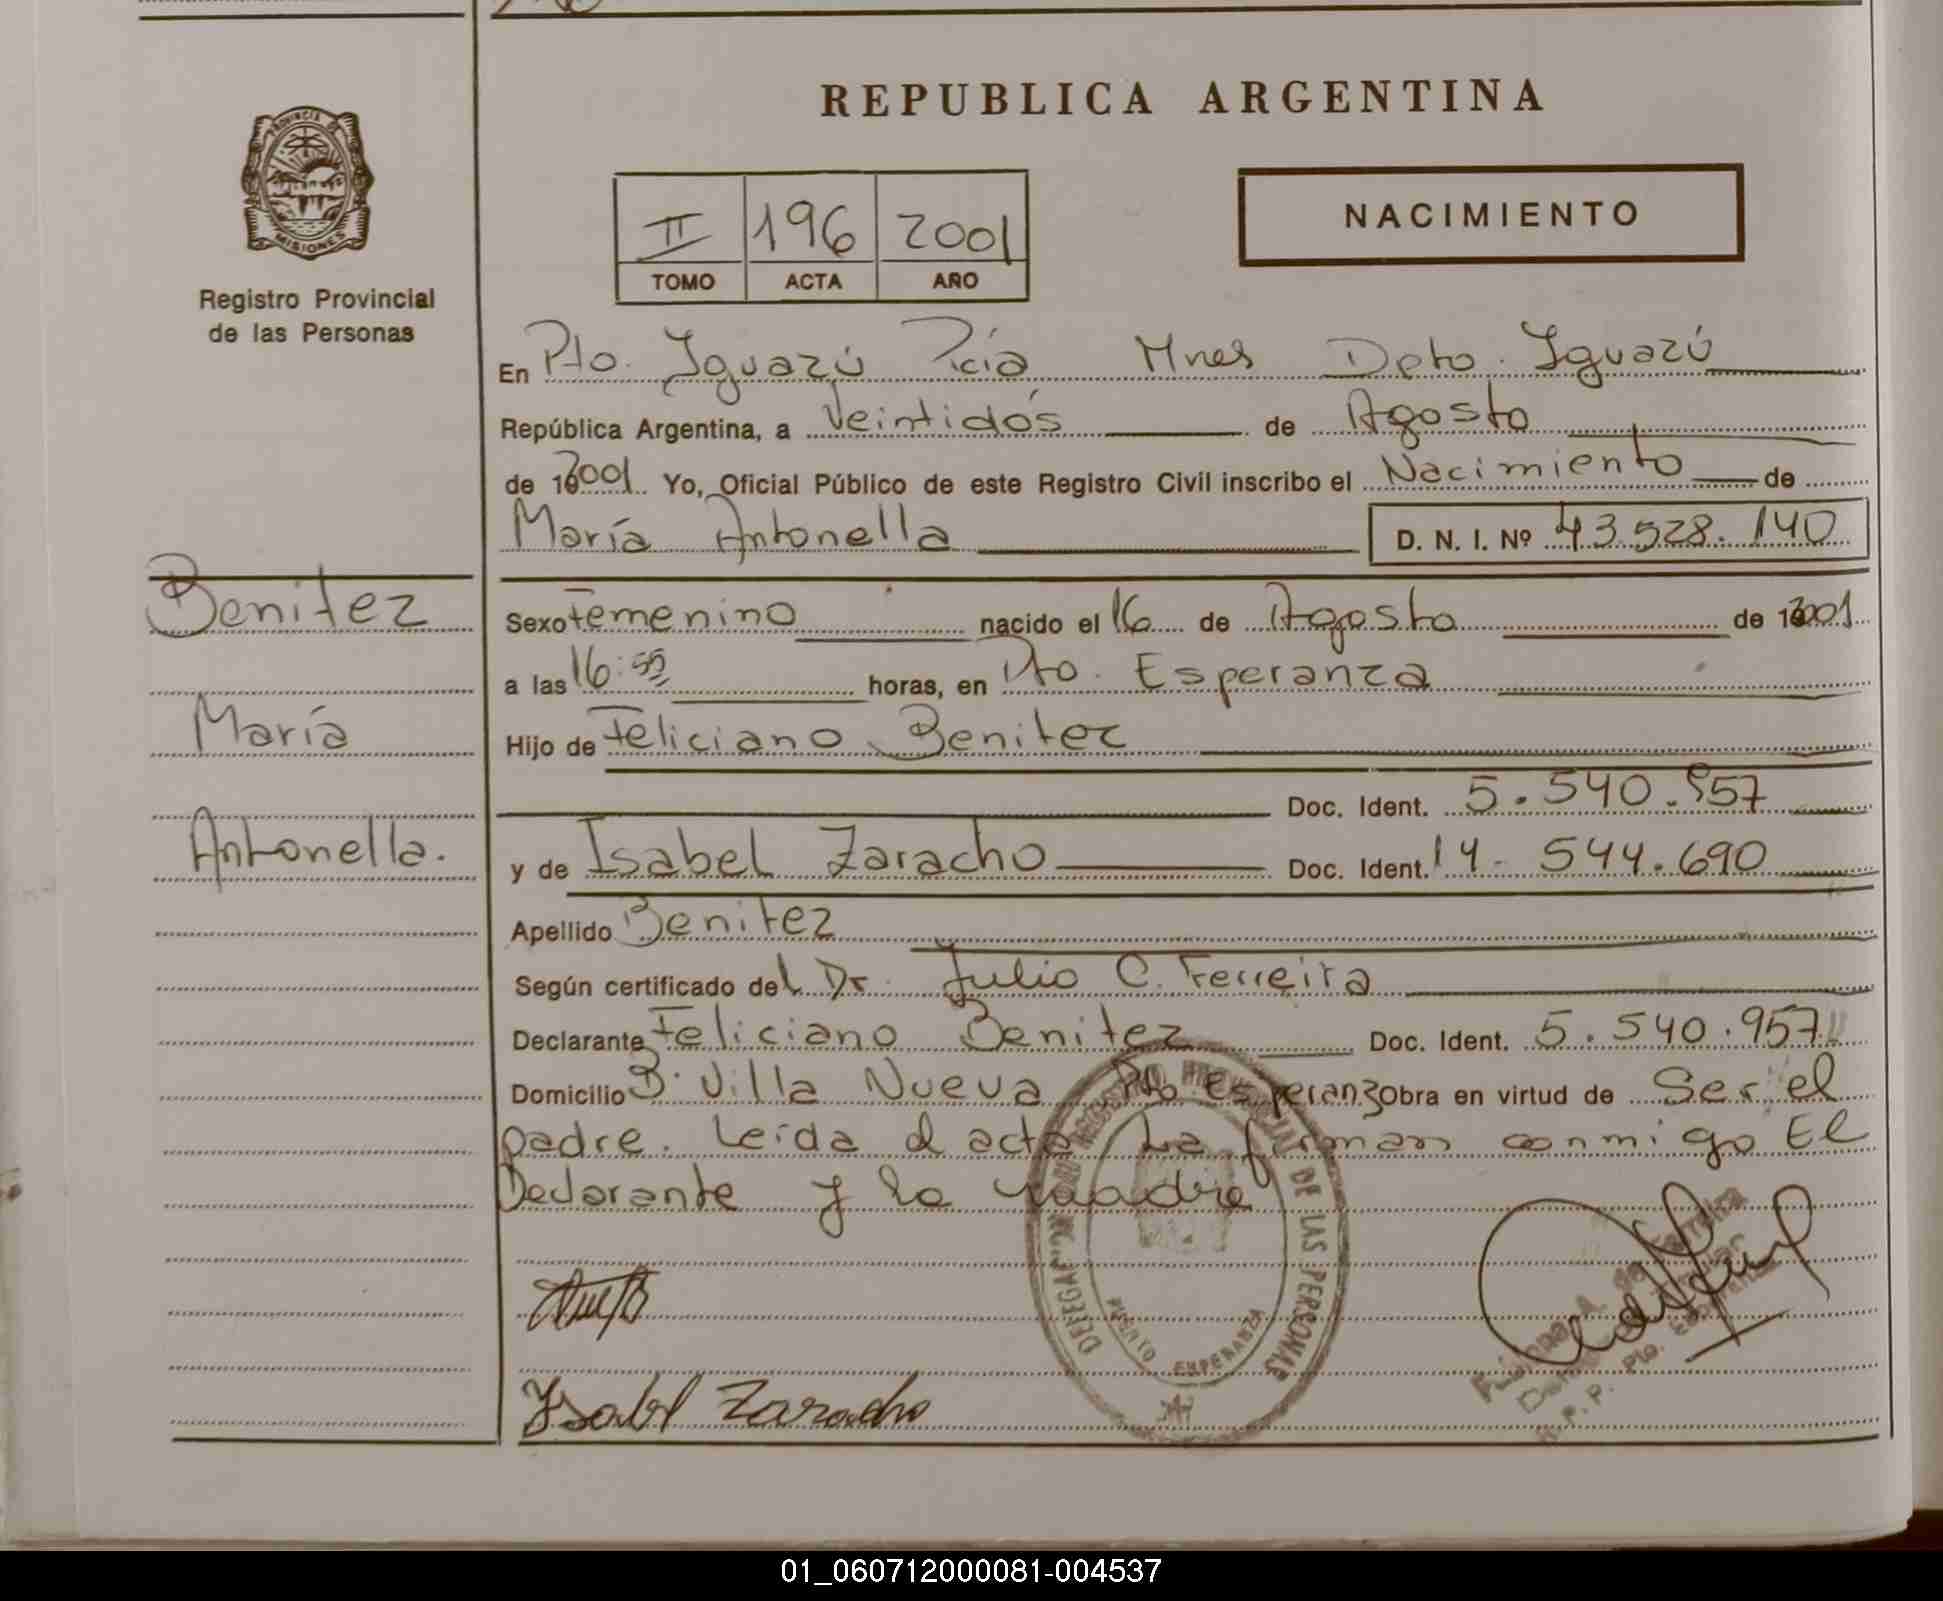 REPUBLICA ARGENTINA
PROVINCIA DE
MISIONES
Registro Provincial
de las Personas
II 196 2001
TOMO ACTA AÑO
NACIMIENTO
En Pto. Iguazú Pcia Mnes Dpto. Iguazú
República Argentina, a Veintidós de Agosto
de 2001 Yo, Oficial Público de este Registro Civil inscribo el Nacimiento de
María Antonella D. N. I. Nº 43.528.140
Benitez
Sexo Femenino nacido el 16 de Agosto de 2001
a las 16:55 horas, en Pto. Esperanza
María
Hijo de Feliciano Benitez
Doc. Ident. 5.540.957
Antonella.
y de Isabel Zaracho Doc. Ident. 14.544.690
Apellido Benitez
Según certificado del Dr. Julio C. Ferreira
Declarante Feliciano Benitez Doc. Ident. 5.540.957
Domicilio B. Villa Nueva Pto Esperanz Obra en virtud de Ser el
padre. Leída el acta La firman conmigo El
Declarante y la madre
Isabel Zaracho
REGISTRO PROVINCIAL DE LAS PERSONAS
PUERTO ESPERANZA
01_060712000081-004537